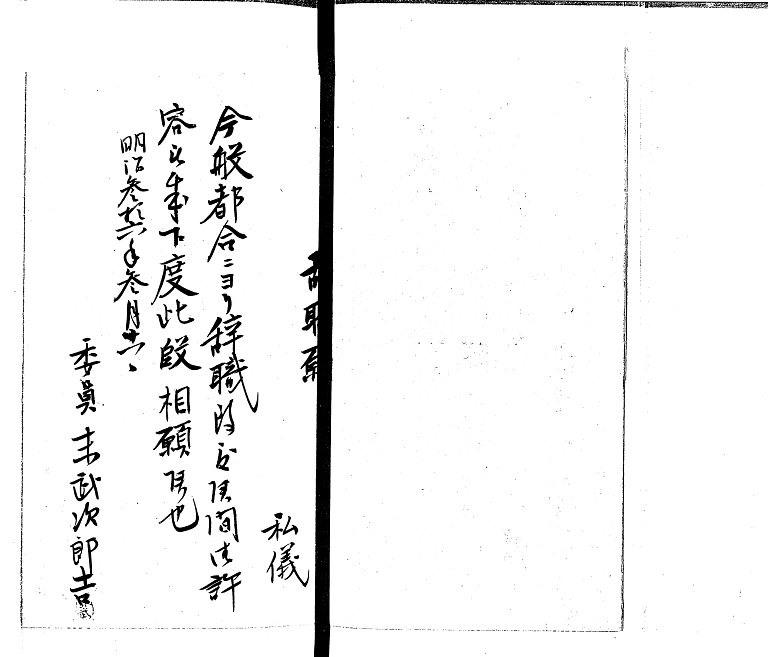 辞職願
私儀
今般都合ニヨリ辞職仕度候間御許
容被成下度此段相願候也
明治参拾六年参月十一日
委員 末武次郎吉